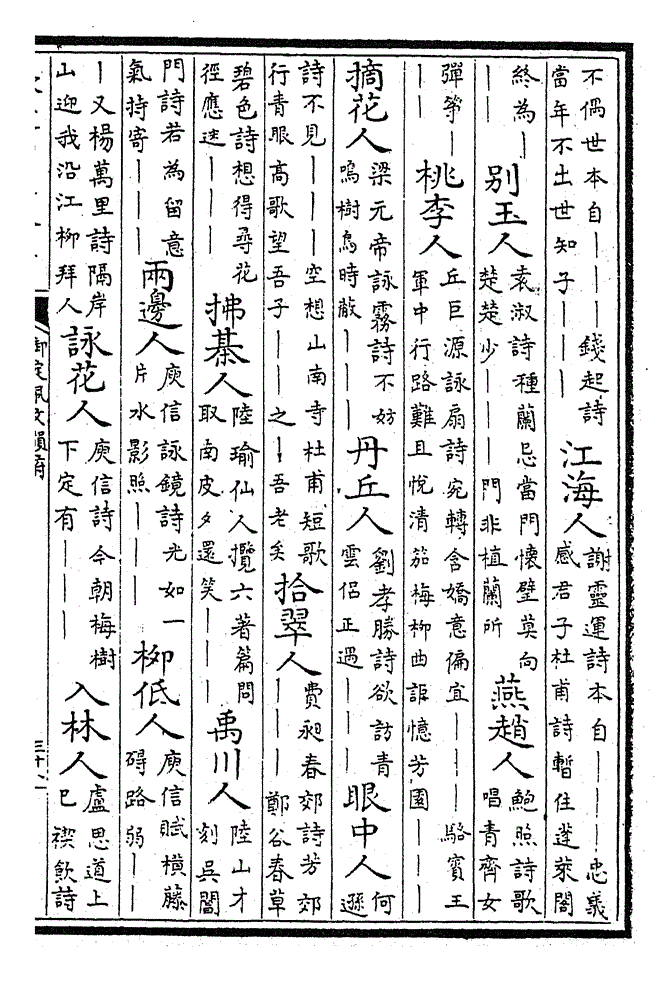 不偶世本自｜｜｜錢起詩
當年不出世知子｜｜｜
江海人
謝靈運詩本自｜｜｜忠義
感君子杜甫詩暫住蓬萊閣
終為｜
｜｜
别玉人
袁淑詩種蘭忌當門懷璧莫向
楚楚少｜｜門非植蘭所
燕趙人
鮑照詩歌
唱青齊女
彈箏｜
｜｜
桃李人
丘巨源詠扇詩宛轉含嬌意偏宜｜｜｜駱賓王
軍中行路難且悅清笳梅柳曲詎憶芳園｜｜｜
摘花人
梁元帝詠霧詩不妨
鳴樹鳥時蔽｜｜｜
丹丘人
劉孝勝詩欲訪青
雲侶正遇｜｜｜
眼中人
何
遜
詩不見｜｜｜空想山南寺杜甫短歌
行青眼高歌望吾子｜｜｜之｜吾老矣
拾翠人
費昶春郊詩芳郊
｜｜｜鄭谷春草
碧色詩想得尋花
徑應迷｜｜｜
拂棊人
陸瑜仙人攬六著篇問
取南皮夕還笑｜｜｜
禹川人
陸山才
刻吳閶
門詩若為留意
氣持寄｜｜｜
兩邊人
庾信詠鏡詩光如一
片水影照｜｜｜
柳低人
庾信賦橫藤
碍路弱｜｜
｜又楊萬里詩隔岸
山迎我沿江柳拜人
詠花人
庾信詩今朝梅樹
下定有｜｜｜
入林人
盧思道上
巳禊飲詩
御定佩文韻府